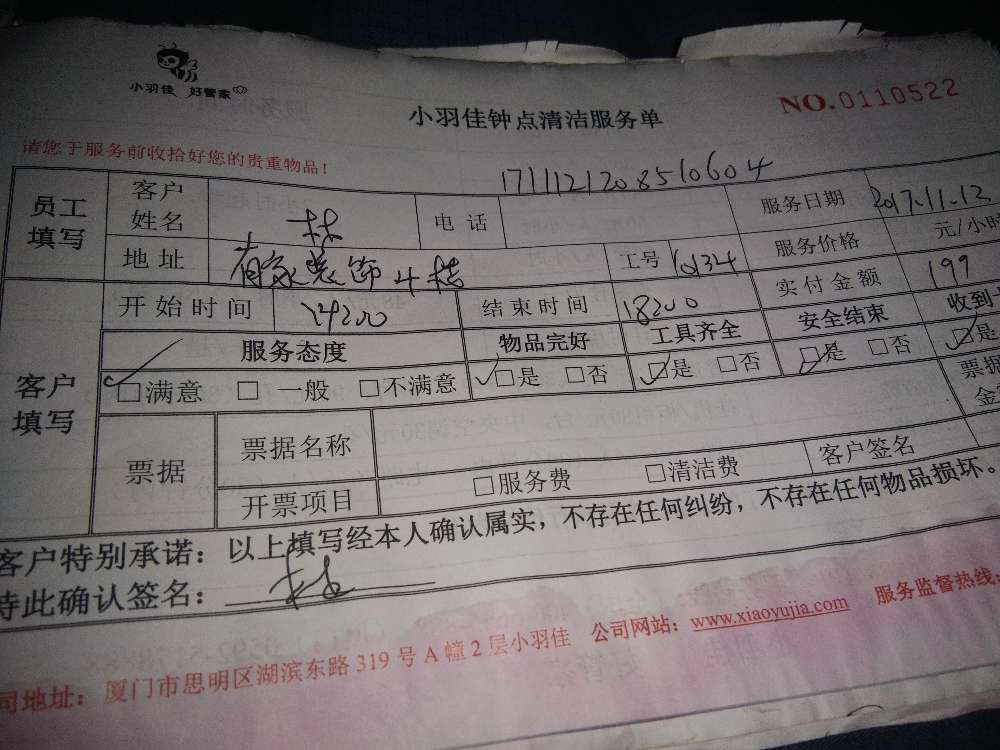 小羽佳 好管家
小羽佳钟点清洁服务单
NO.0110522
请您于服务前收拾好您的贵重物品!
1711121208510604
员工填写 客户姓名 林 电话 服务日期 2017.11.12
地址 有家装饰4楼 工号 服务价格 元/小时
开始时间 结束时间 实付金额 199
客户填写 服务态度 物品完好 工具齐全 安全结束 收到
□满意 □一般 □不满意 □是 □否 □是 □否 □是 □否 □是
票据 票据名称 票据
金
开票项目 □服务费 □清洁费 客户签名
客户特别承诺:以上填写经本人确认属实,不存在任何纠纷,不存在任何物品损坏。
特此确认签名:
司地址:厦门市思明区湖滨东路319号A幢2层小羽佳 公司网站:www.xiaoyujia.com 服务监督热线: